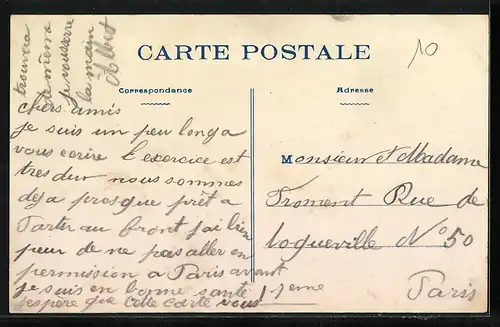 CARTE POSTALE
Correspondance
Adresse
10
chers amis
je suis un peu long a
vous ecrire l'exercice est
tres dur nous sommes
deja presque prêt a
Partir au front j'ai bien
peur de ne pas aller en
permission a Paris avant
je suis en bonne santé
j'espère que cette carte vous
trouvera
de même
je vous serre
la main
Albert
Monsieur et Madame
Froment Rue de
loqueville No 50
Paris